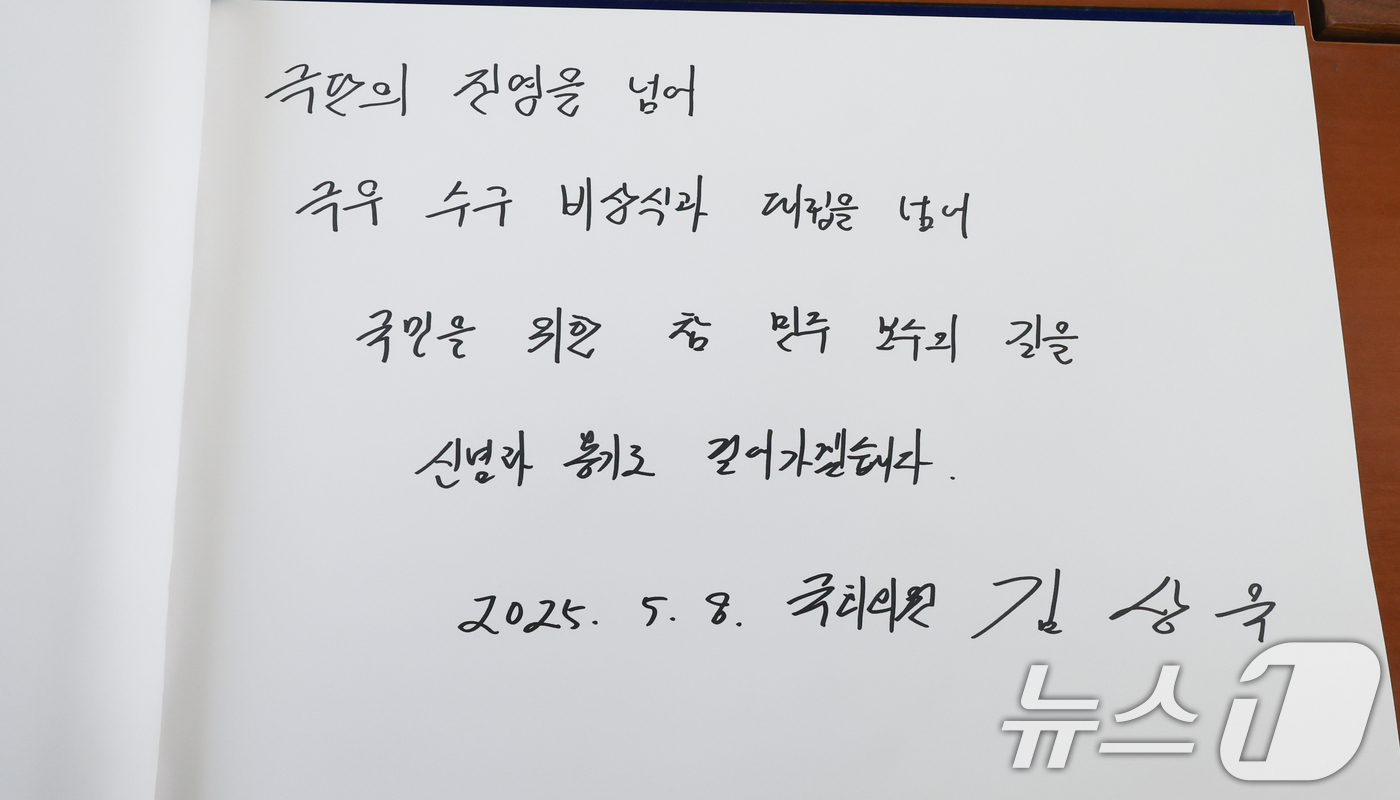 극단의 진영을 넘어
극우 수구 비상식과 대립을 넘어
국민을 위한 참 민주 보수의 길을
신념과 용기로 걸어가겠습니다.
2025. 5. 8. 국회의원 김상욱
뉴스1